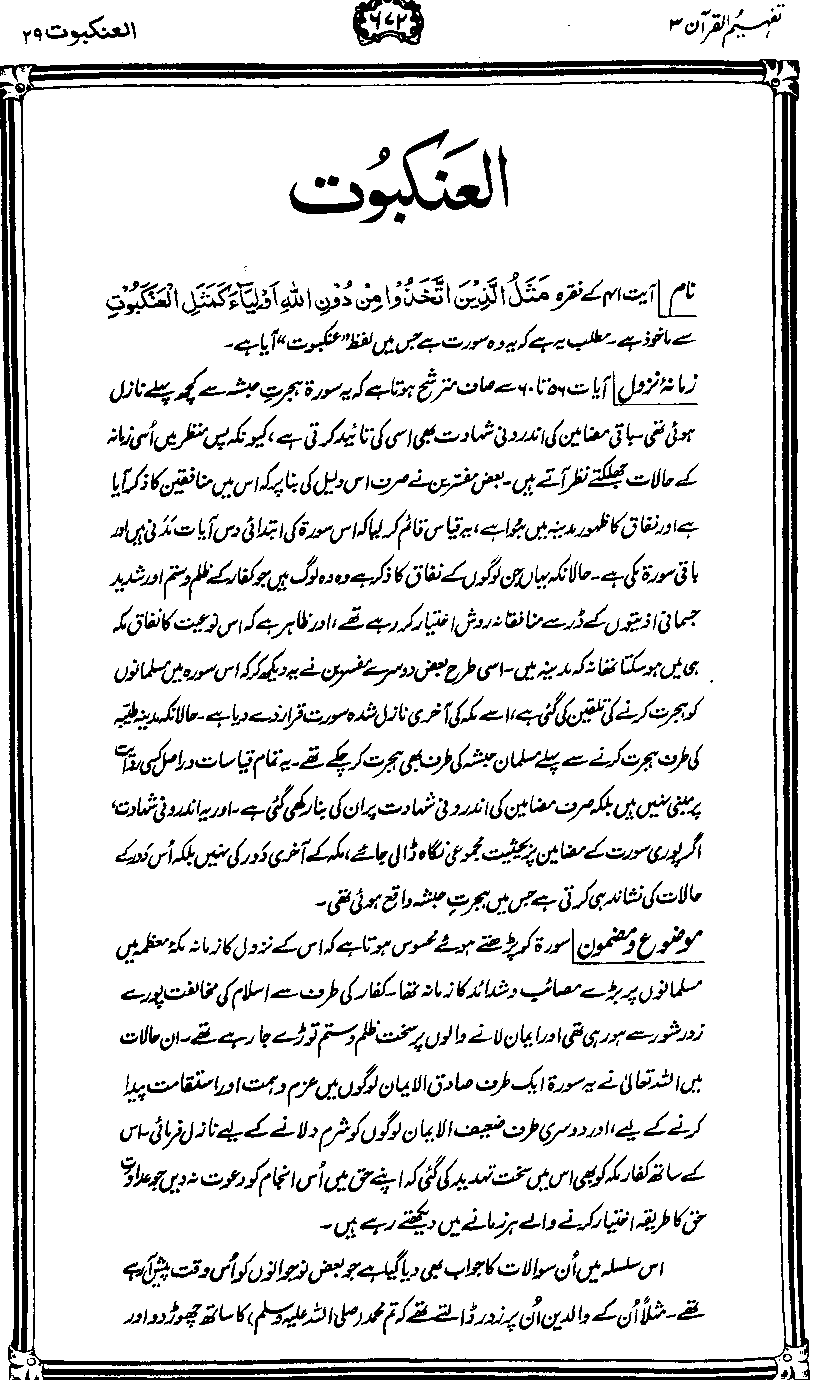 تفہیم القرآن ۳
۶۷۲
العنکبوت ۲۹
العَنکبُوت
نام | آیت ۴۱ کے فقرہ مَثَلُ الَّذِيْنَ اتَّخَذُوْا مِنْ دُوْنِ اللهِ اَوْلِيَآءَ كَمَثَلِ الْعَنْكَبُوْتِ
سے ماخوذ ہے۔ مطلب یہ ہے کہ یہ وہ سورت ہے جس میں لفظ "عنکبوت" آیا ہے۔
زمانۂ نزول | آیات ۵۶ تا ۶۰ سے صاف مترشح ہوتا ہے کہ یہ سورۃ ہجرتِ حبشہ سے کچھ پہلے نازل
ہوئی تھی۔ باقی مضامین کی اندرونی شہادت بھی اسی کی تائید کرتی ہے، کیونکہ پس منظر میں اُسی زمانہ
کے حالات جھلکتے نظر آتے ہیں۔ بعض مفسّرین نے صرف اس دلیل کی بنا پر کہ اس میں منافقین کا ذکر آیا
ہے اور نفاق کا ظہور مدینہ میں ہُوا ہے، یہ قیاس قائم کر لیا کہ اس سورۃ کی ابتدائی دس آیات مَدَنی ہیں اور
باقی سورۃ مکی ہے۔ حالانکہ یہاں جن لوگوں کے نفاق کا ذکر ہے وہ وہ لوگ ہیں جو کفار کے ظلم و ستم اور شدید
جسمانی اذیتوں کے ڈر سے منافقانہ روش اختیار کر رہے تھے، اور ظاہر ہے کہ اس نوعیت کا نفاق مکہ
ہی میں ہو سکتا تھا نہ کہ مدینہ میں۔ اسی طرح بعض دوسرے مفسرین نے یہ دیکھ کر کہ اس سورہ میں مسلمانوں
کو ہجرت کرنے کی تلقین کی گئی ہے، اسے مکہ کی آخری نازل شدہ سورت قرار دے دیا ہے۔ حالانکہ مدینہ طیبہ
کی طرف ہجرت کرنے سے پہلے مسلمان حبشہ کی طرف بھی ہجرت کر چکے تھے۔ یہ تمام قیاسات دراصل کسی روایت
پر مبنی نہیں ہیں بلکہ صرف مضامین کی اندرونی شہادت پر ان کی بنا رکھی گئی ہے۔ اور یہ اندرونی شہادت،
اگر پوری سورت کے مضامین پر بحیثیت مجموعی نگاہ ڈالی جائے، مکہ کے آخری دَور کی نہیں بلکہ اُس دَور کے
حالات کی نشاندہی کرتی ہے جس میں ہجرتِ حبشہ واقع ہوئی تھی۔
موضوع و مضمون | سورۃ کو پڑھتے ہوئے محسوس ہوتا ہے کہ اس کے نزول کا زمانہ مکۂ معظمہ میں
مسلمانوں پر بڑے مصائب و شدائد کا زمانہ تھا۔ کفار کی طرف سے اسلام کی مخالفت پورے
زور شور سے ہو رہی تھی اور ایمان لانے والوں پر سخت ظلم و ستم توڑے جا رہے تھے۔ ان حالات
میں اللہ تعالیٰ نے یہ سورۃ ایک طرف صادق الایمان لوگوں میں عزم و ہمت اور استقامت پیدا
کرنے کے لیے، اور دوسری طرف ضعیف الایمان لوگوں کو شرم دلانے کے لیے نازل فرمائی۔ اس
کے ساتھ کفار مکہ کو بھی اس میں سخت تہدید کی گئی کہ اپنے حق میں اُس انجام کو دعوت نہ دیں جو عداوتِ
حق کا طریقہ اختیار کرنے والے ہر زمانے میں دیکھتے رہے ہیں۔
اس سلسلہ میں اُن سوالات کا جواب بھی دیا گیا ہے جو بعض نوجوانوں کو اُس وقت پیش آ رہے
تھے۔ مثلاً اُن کے والدین اُن پر زور ڈالتے تھے کہ تم محمد (صلی اللہ علیہ وسلم) کا ساتھ چھوڑ دو اور